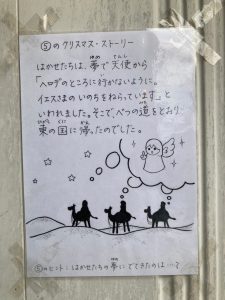 ⑤のクリスマス・ストーリー
はかせたちは、夢で天使から
「ヘロデのところに行かないように。
イエスさまのいのちをねらっています」と
いわれました。そこで、べつの道をとおり、
東の国に帰ったのでした。
⑤のヒント:はかせたちの夢にでてきたのは…?